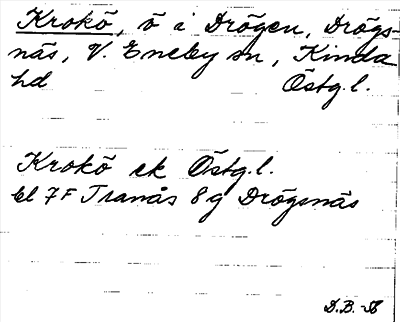 Krokö, ö i Drögen, Drögs-
näs, V. Eneby sn, Kinda
hd Östg.l.
Krokö ek Östg.l.
bl 7F Tranås 8g Drögsnäs
D.B.-56